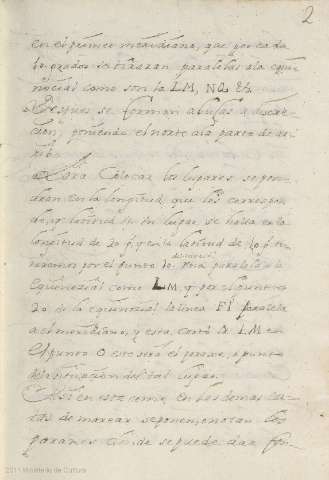 2
en el primer meridiano, que por cada
10 grados se tiraran paralelas a la equi-
nocial como son la LM, NQ, &ª.
Despues se forman abujas a discre-
cion, poniendo el norte a la parte de ar-
riba.
Para Colocar los lugares se pon-
dran en la longitud, que les correspon-
de, y latitud un lugar se halla en la
longitud de 20 g. y en la latitud de 10 g. ti-
raremos por el punto 10 una paralela a la
Equinocial como LM y por el punto
20 de la equinocial la linea FI paralela
a el meridiano, y esta corta a LM en
el punto O este será el parage, o punto
de la situacion del tal lugar.
Assi en esta como en las demas car-
tas de marear se ponen, o notan los
parages en donde se puede dar fon-
2011 Ministerio de Cultura